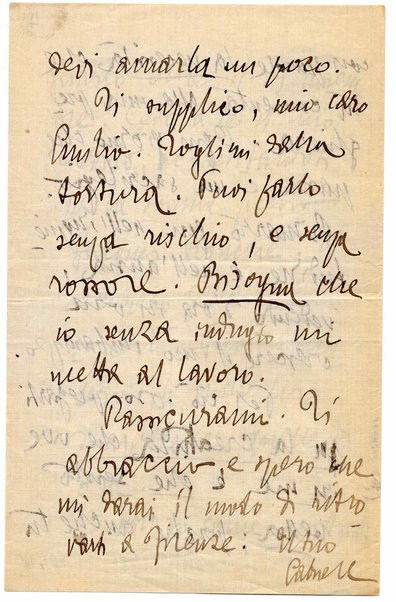 devi amarla un poco.
Ti supplico, mio caro
Emilio. Toglimi dalla
tortura. Puoi farlo
senza rischio, e senza
rossore. Bisogna che
io senza indugio mi
metta al lavoro.
Rassicurami. Ti
abbraccio, e spero che
mi darai il modo di ritro
varti a Firenze. Il tuo
Gabriele